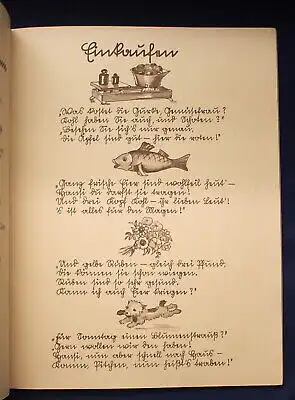 Einkaufen
„Was kostet die Gurke, Gemüsefrau?
Kohl haben Sie auch, und Schoten?"
„Besehen Sie sich's nur genau,
die Äpfel sind gut – hier die roten!"
„Ganz frische Eier sind wohlfeil heut' –
Hansi du darfst sie tragen!
Und drei Kopf Kohl – ihr lieben Leut'!
's ist alles für den Magen!"
„Und gelbe Rüben – gleich drei Pfund,
die können Sie schon wiegen.
Rüben sind so sehr gesund.
Kann ich auch Eier kriegen?"
„Für Sonntag einen Blumenstrauß?"
„Gern wollen wir den haben!
Hansi, nun aber schnell nach Haus –
Komm, nun heißt's traben!"